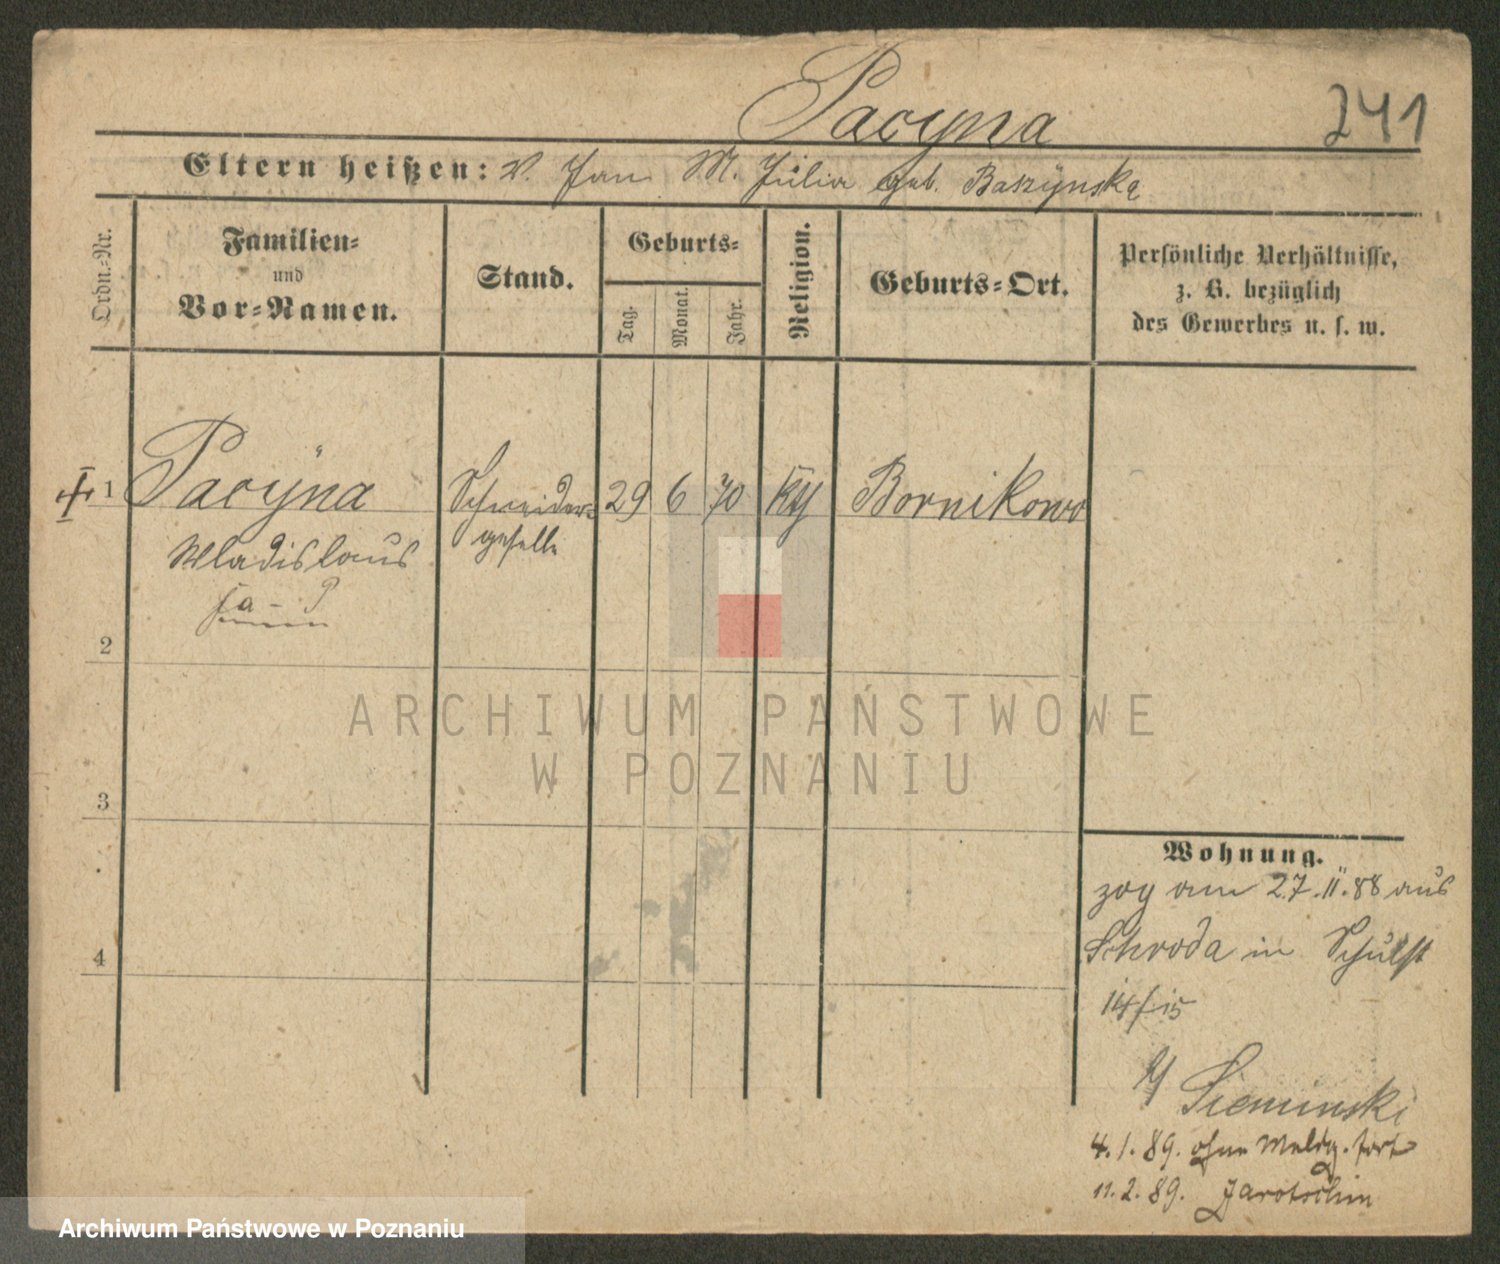 Pacyna
241
Eltern heißen: V. Jan M. Julia geb. Baszynska
Ordn.-Nr.
Familien-
und
Vor-Namen.
Stand.
Geburts-
Tag.
Monat.
Jahr.
Religion.
Geburts-Ort.
Persönliche Verhältnisse,
z. B. bezüglich
des Gewerbes u. s. w.
1 Pacyna Schneider- 29 6 70 Bornikowo
Wladislaus geselle
2
3
4
Wohnung.
zog am 27.11.88 aus
Schroda in Schulst
14/15
b/ Sieminski
4.1.89. ohne Meldg. fort
11.2.89. Jarotschin
ARCHIWUM PAŃSTWOWE
W POZNANIU
Archiwum Państwowe w Poznaniu